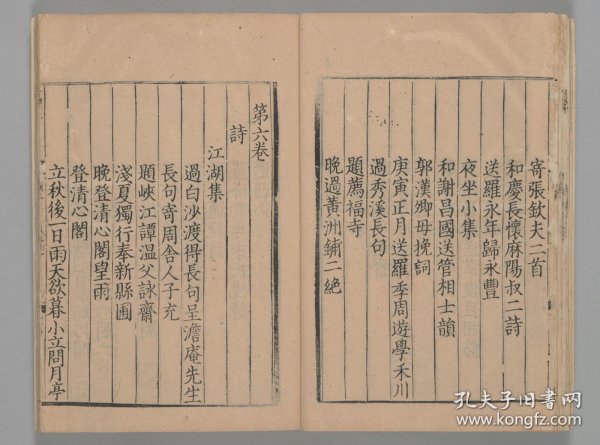 寄張欽夫二首
和慶長懷麻陽叔二詩
送羅永年歸永豐
夜坐小集
和謝昌國送管相士韻
郭漢卿母挽詞
庚寅正月送羅季周遊學禾川
過秀溪長句
題薦福寺
晚過黃洲鋪二絶
第六卷
詩
江湖集
過白沙渡得長句呈澹庵先生
長句寄周舍人子充
題峽江譚温父詠齋
淺夏獨行奉新縣圃
晚登清心閣望雨
登清心閣
立秋後一日雨天欲暮小立問月亭
孔夫子旧书网
www.kongfz.com